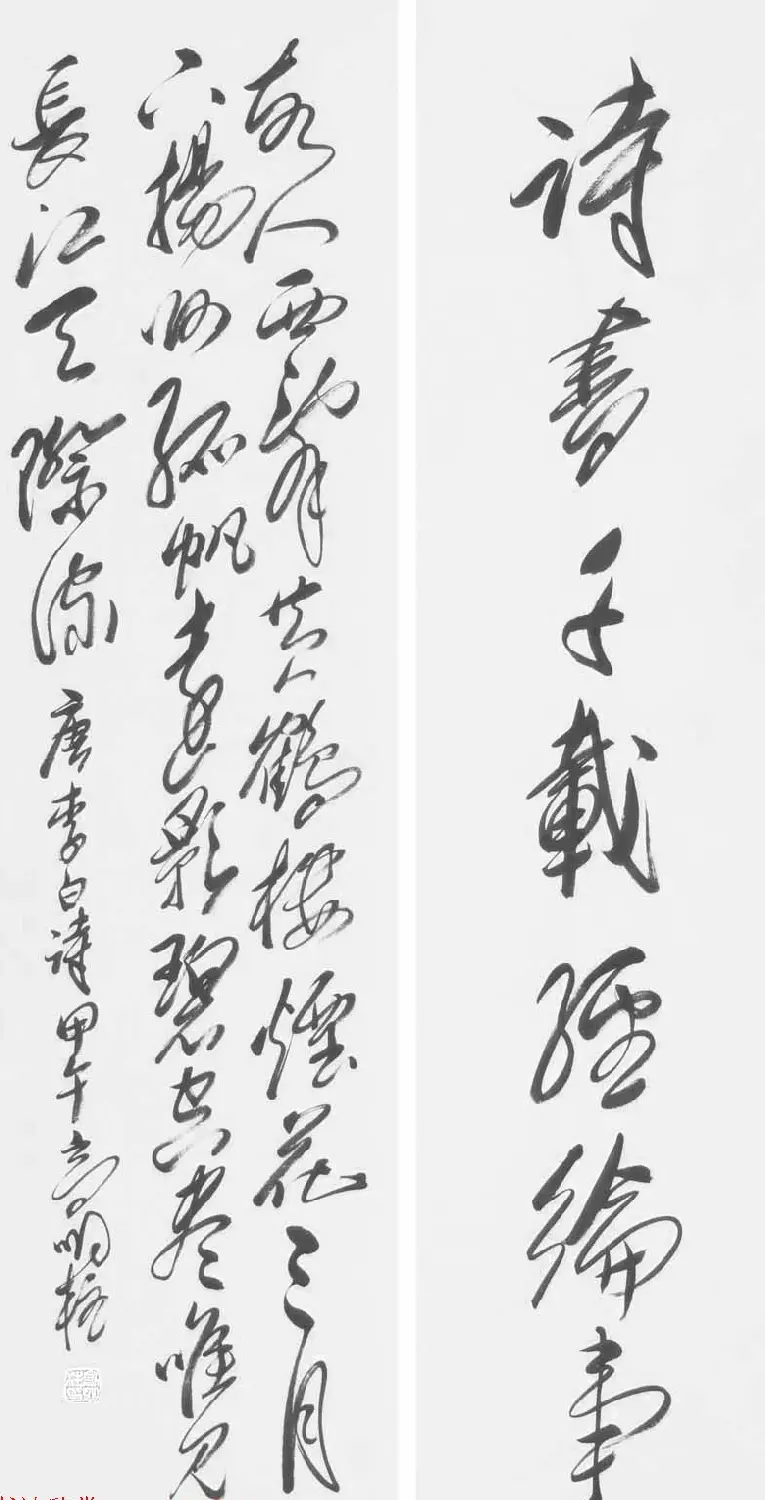 詩書千載經綸事
故人西辭黃鶴樓煙花三月
下揚州孤帆遠影碧空盡唯見
長江天際流 唐李白詩 甲午高明